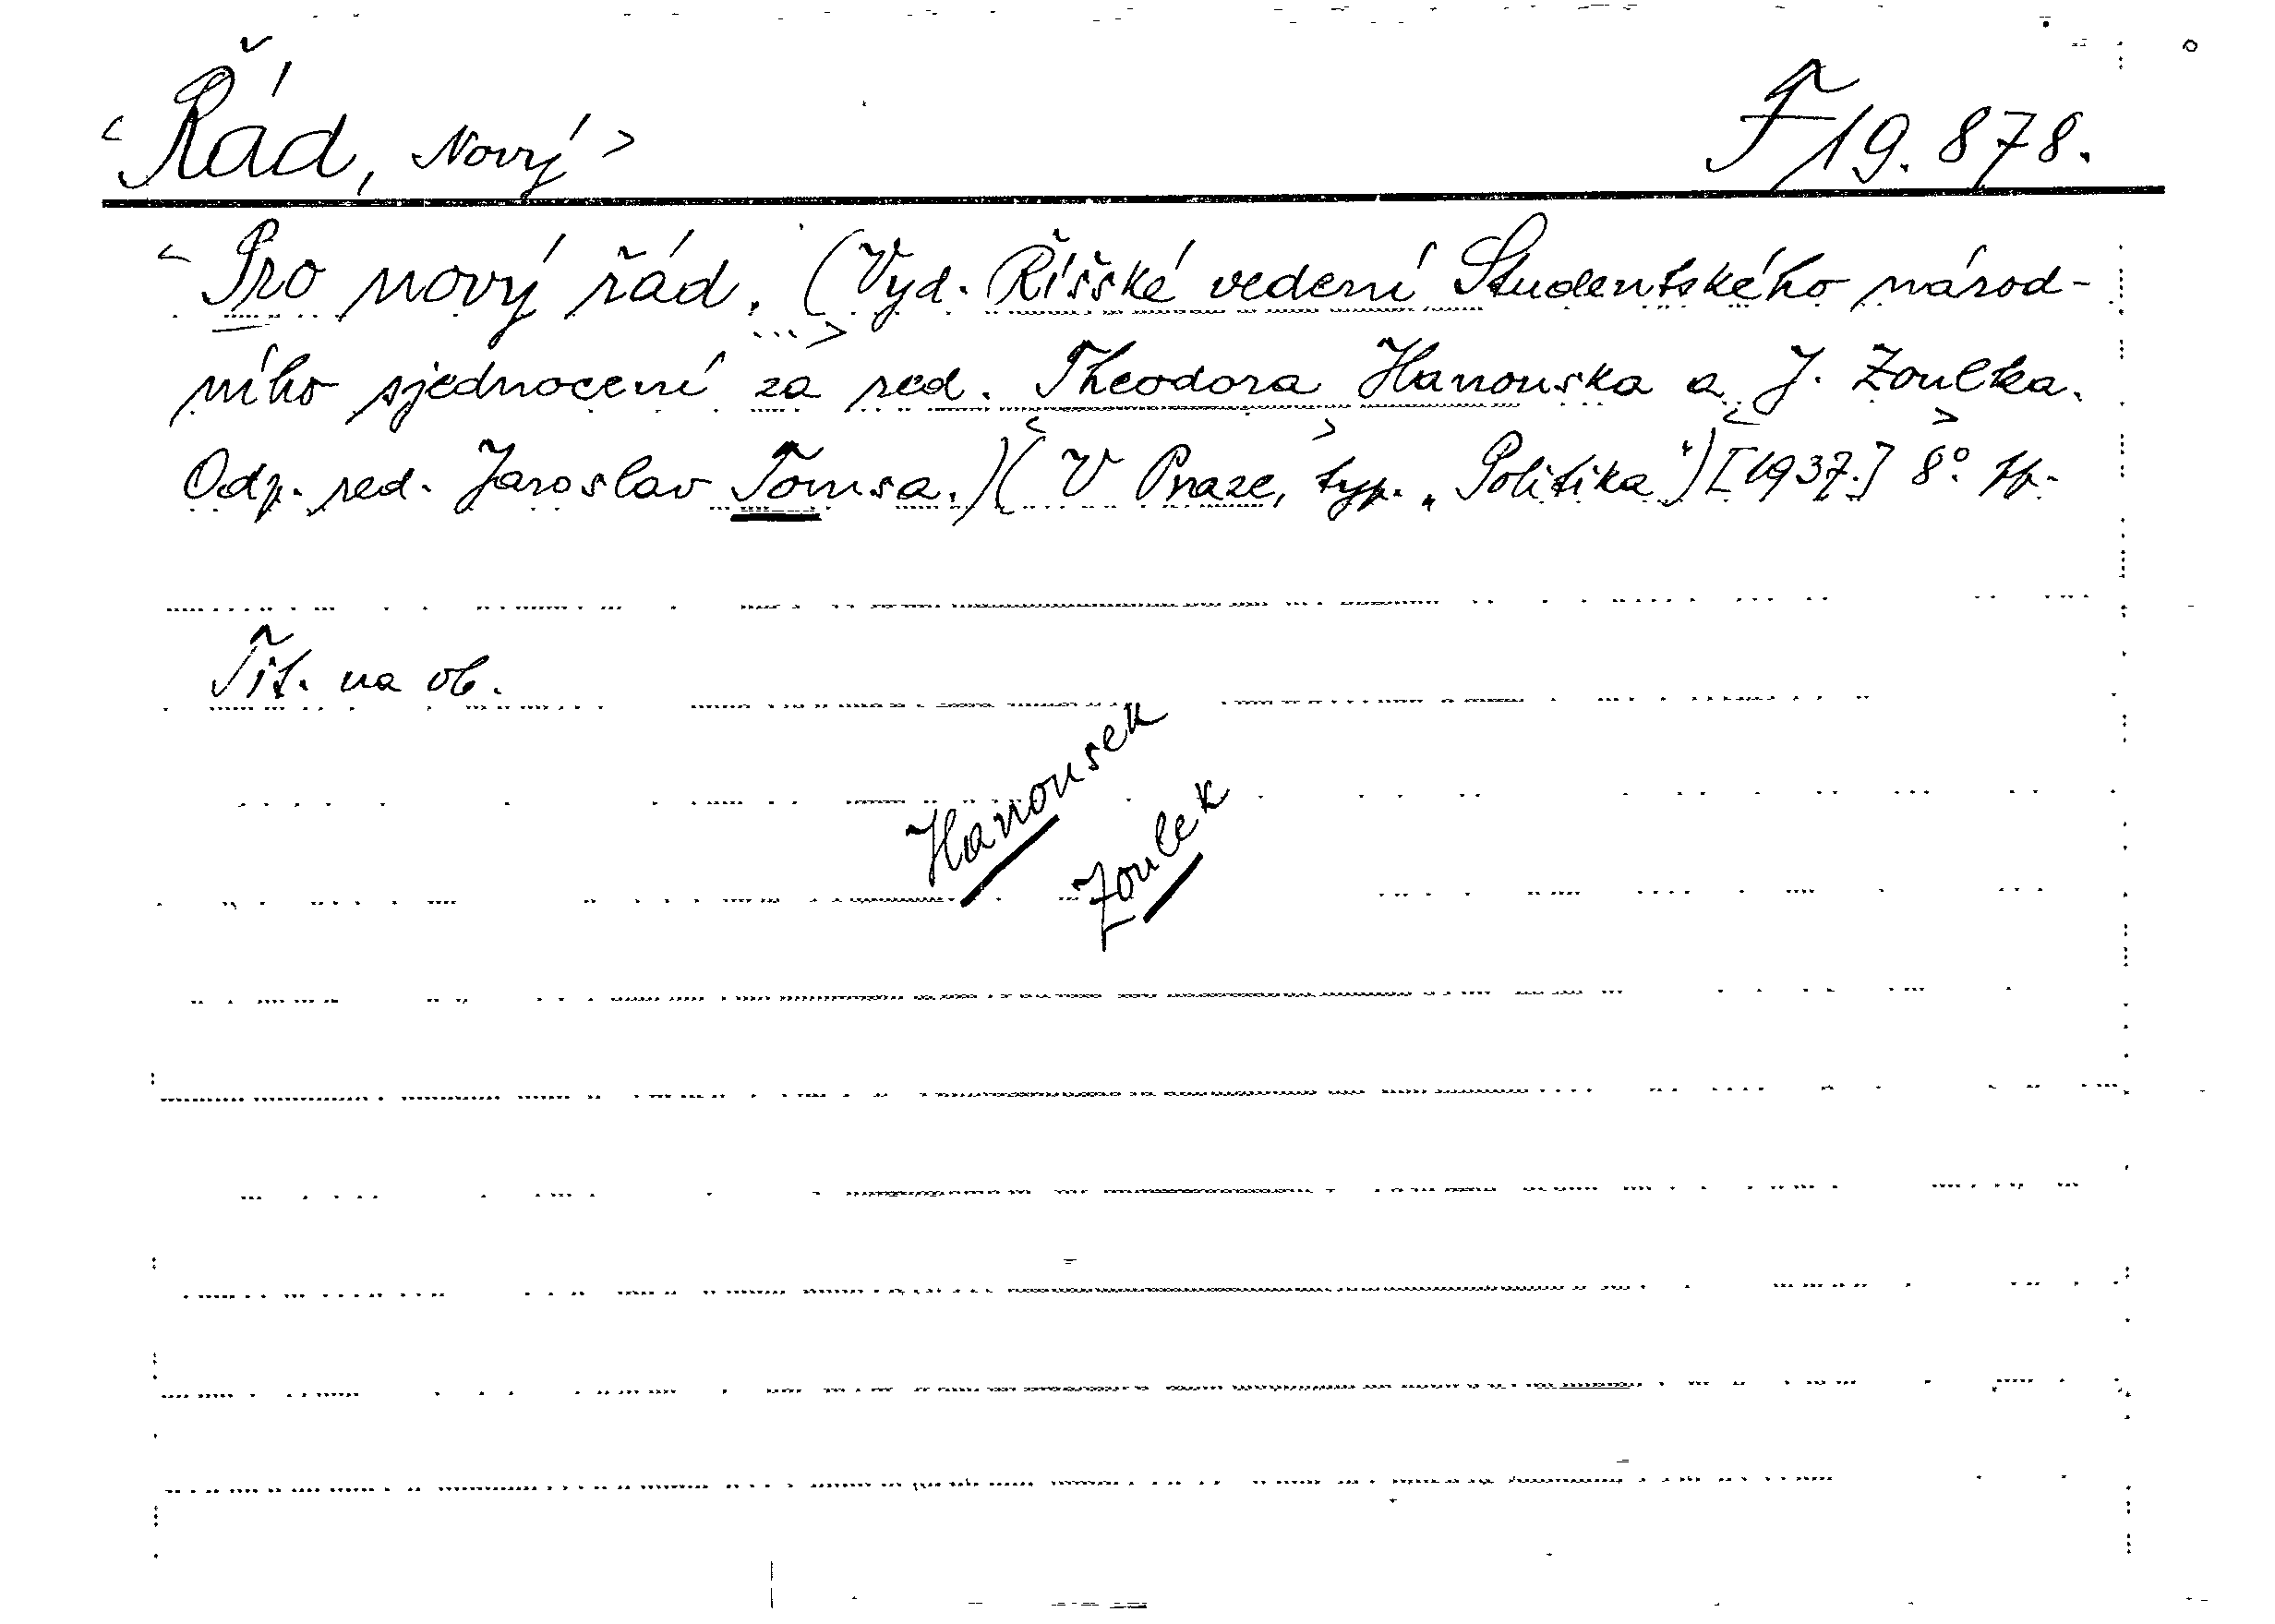 <Řád, Nový> F 19.878.
<Pro nový řád. ...> (Vyd. Říšské vedení Studentského národ-
ního sjednocení za red. Theodora Hanouska a J. Zoulka.
Odp. red. Jaroslav Tomsa.) (V Praze, typ. „Politika“) [1937.] 8°.
Tit. na ob.
Hanousek
Zoulek